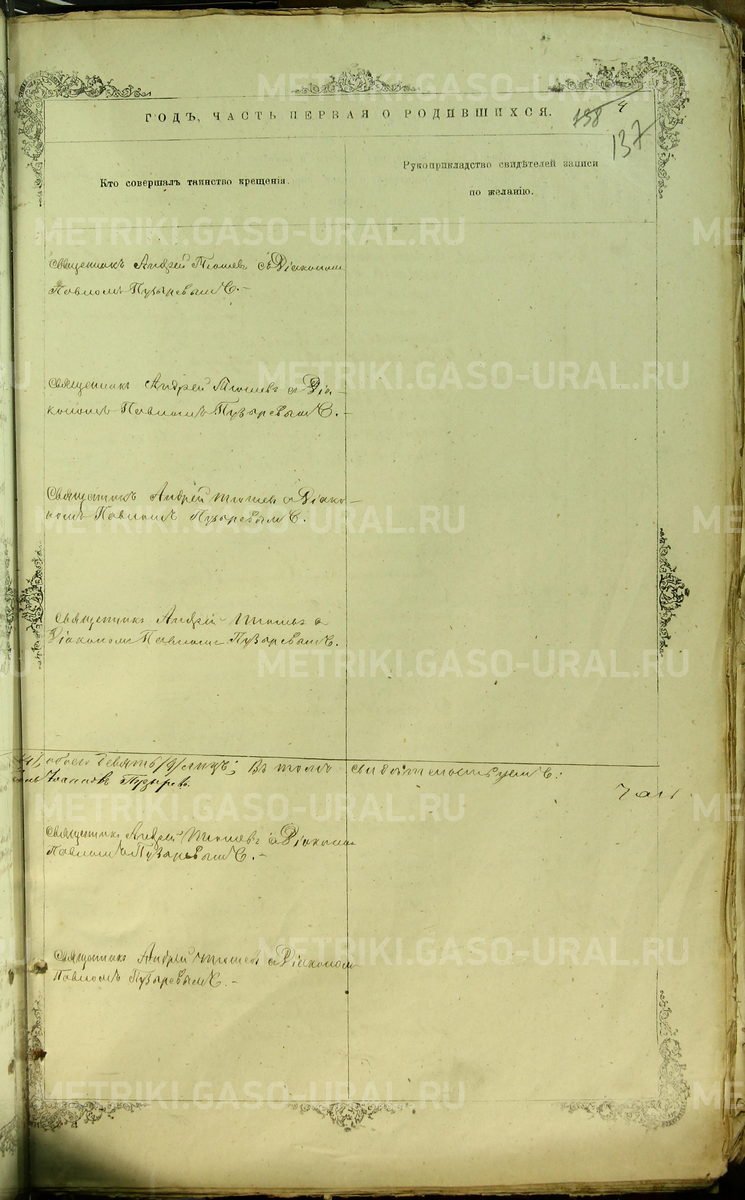 ГОДЪ, ЧАСТЬ ПЕРВАЯ О РОДИВШИХСЯ.
138 4
137
Кто совершалъ таинство крещенія.
Рукоприкладство свидѣтелей записи
по желанію.
Священникъ Андрей съ Діакономъ
Павломъ Пузыревымъ.-
Священникъ Андрей съ Діа-
кономъ Павломъ Пузыревымъ.-
Священникъ Андрей съ Діако-
номъ Павломъ Пузыревымъ.
Священникъ Андрей съ
Діакономъ Павломъ Пузыревымъ.
обоего девять /9/ лицъ; Въ томъ свидѣтельствуемъ:
Пузыревъ.
Священникъ Андрей съ Діакономъ
Павломъ Пузыревымъ.-
Священникъ Андрей съ Діакономъ
Павломъ Пузыревымъ.-
METRIKI.GASO-URAL.RU